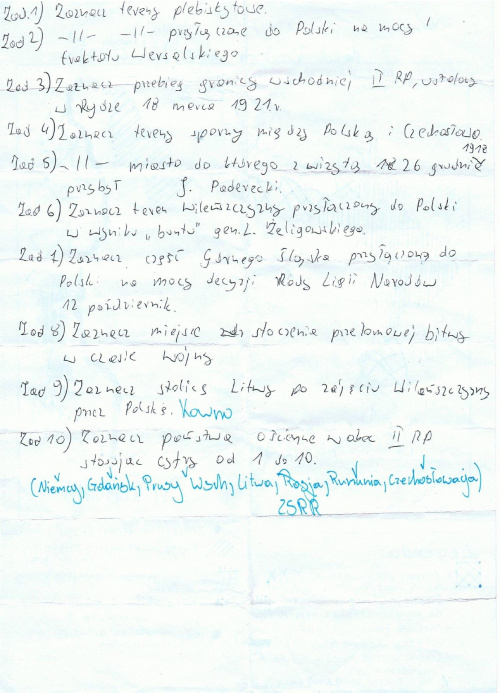 Zad 1) Zaznacz tereny plebiskytowe.
Zad 2) -||- -||- przyłączone do Polski na mocy
traktatu Wersalskiego
Zad 3) Zaznacz przebieg granicy wschodniej II RP, ustalony
w Rydze 18 marca 1921r.
Zad 4) Zaznacz tereny sporny między Polską i Czechosłowa
Zad 5) -||- miasto do którego z wizytą 26 grudnia 1918
przybył J. Paderecki.
Zad 6) Zaznacz teren Wileńszczyzny przyłączony do Polski
w wyniku „buntu" gen. L. Żeligowskiego.
Zad 7) Zaznacz część Górnego Śląska przyłączoną do
Polski na mocy decyzji Rady Ligii Narodów
12 październik.
Zad 8) Zaznacz miejsce stoczenia przełomowej bitwy
w czasie wojny
Zad 9) Zaznacz stolicę Litwy po zajęciu Wileńszczyzny
przez Polskę. Kowno
Zad 10) Zaznacz państwa ościenne wobec II RP
stosując cyfry od 1 do 10.
(Niemcy, Gdańsk, Prusy Wsch, Litwa, Rosja, Rumunia, Czechosłowacja)
ZSRR